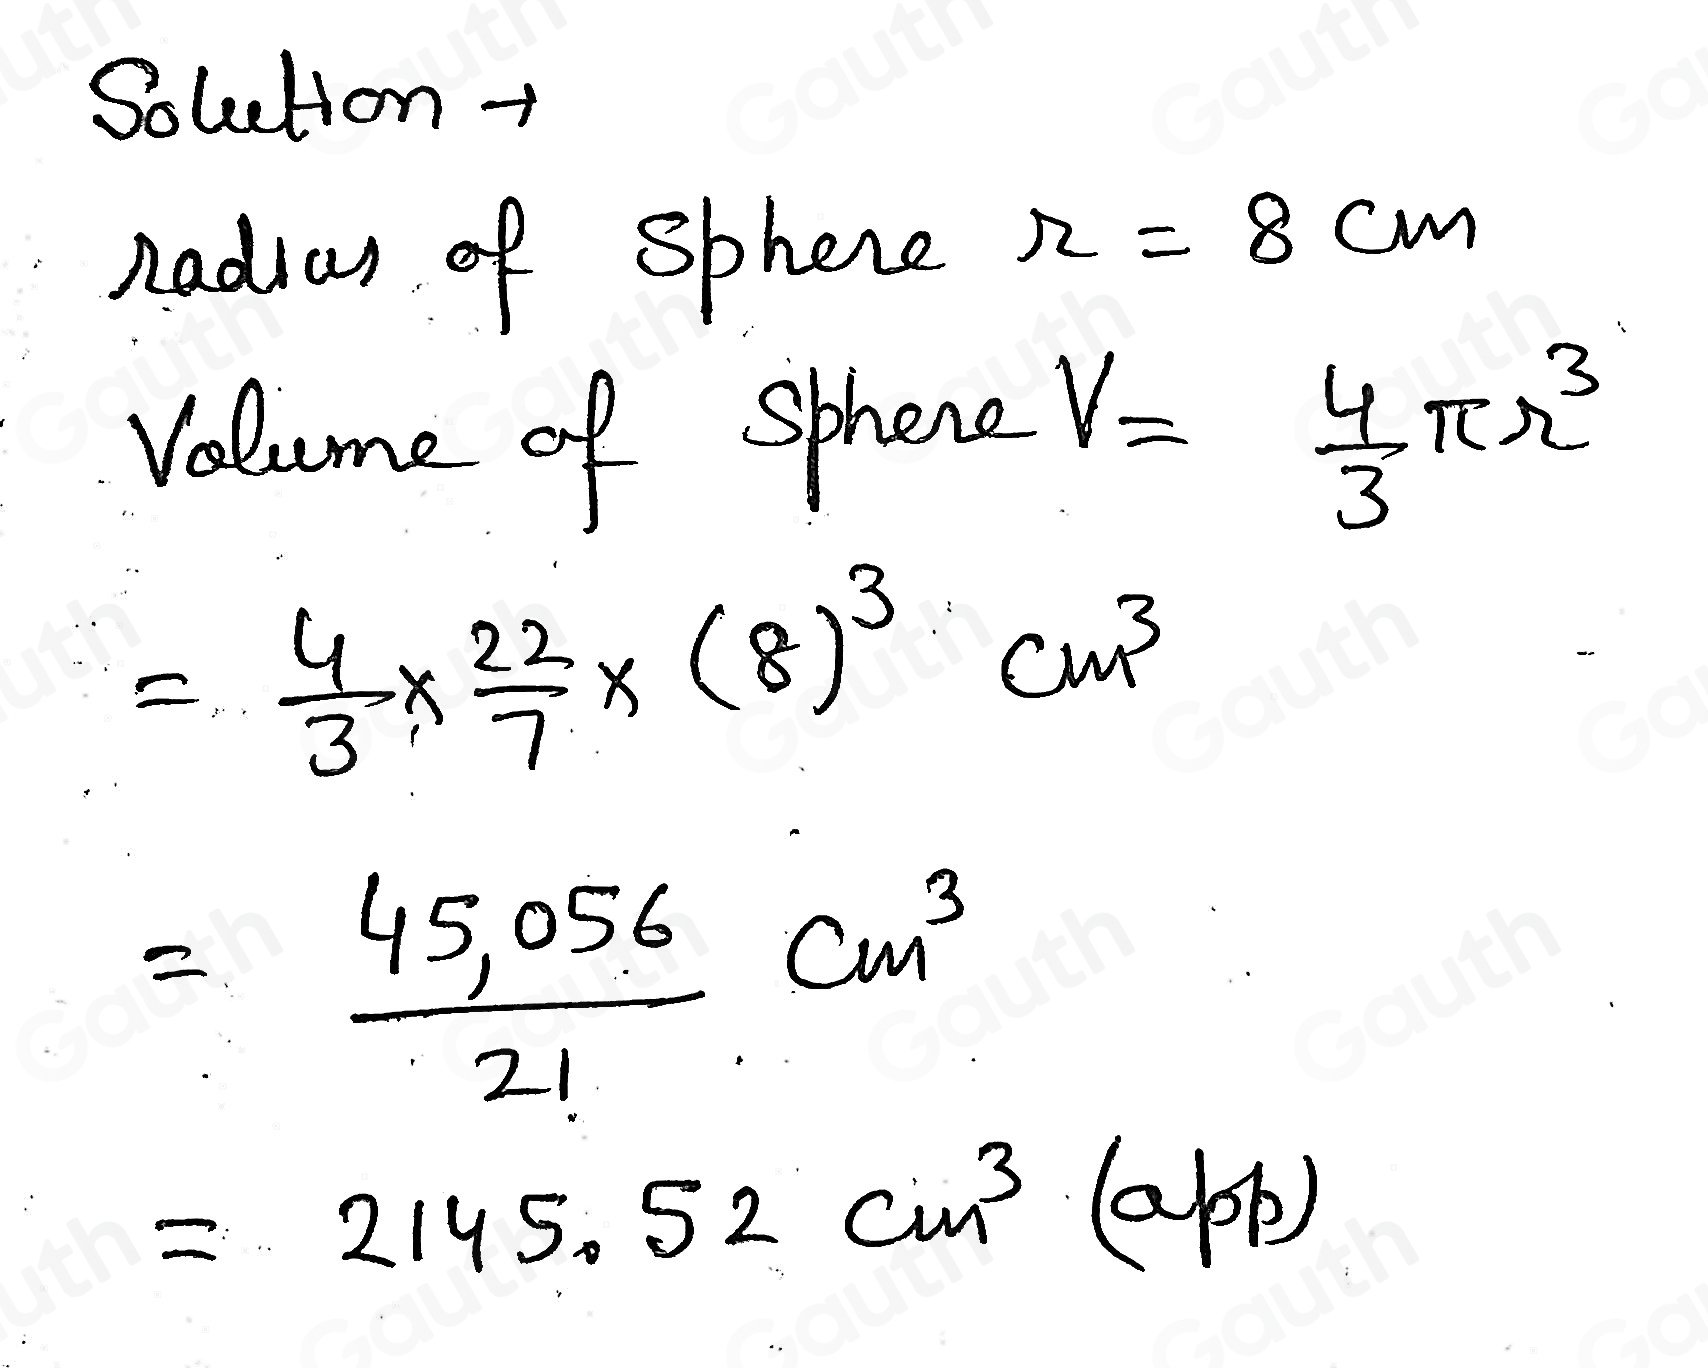 Solution →
radius of sphere r = 8 cm
Volume of sphere V = 4/3 πr³
= 4/3 × 22/7 × (8)³ cm³
= 45,056/21 cm³
= 2145.52 cm³ (app)